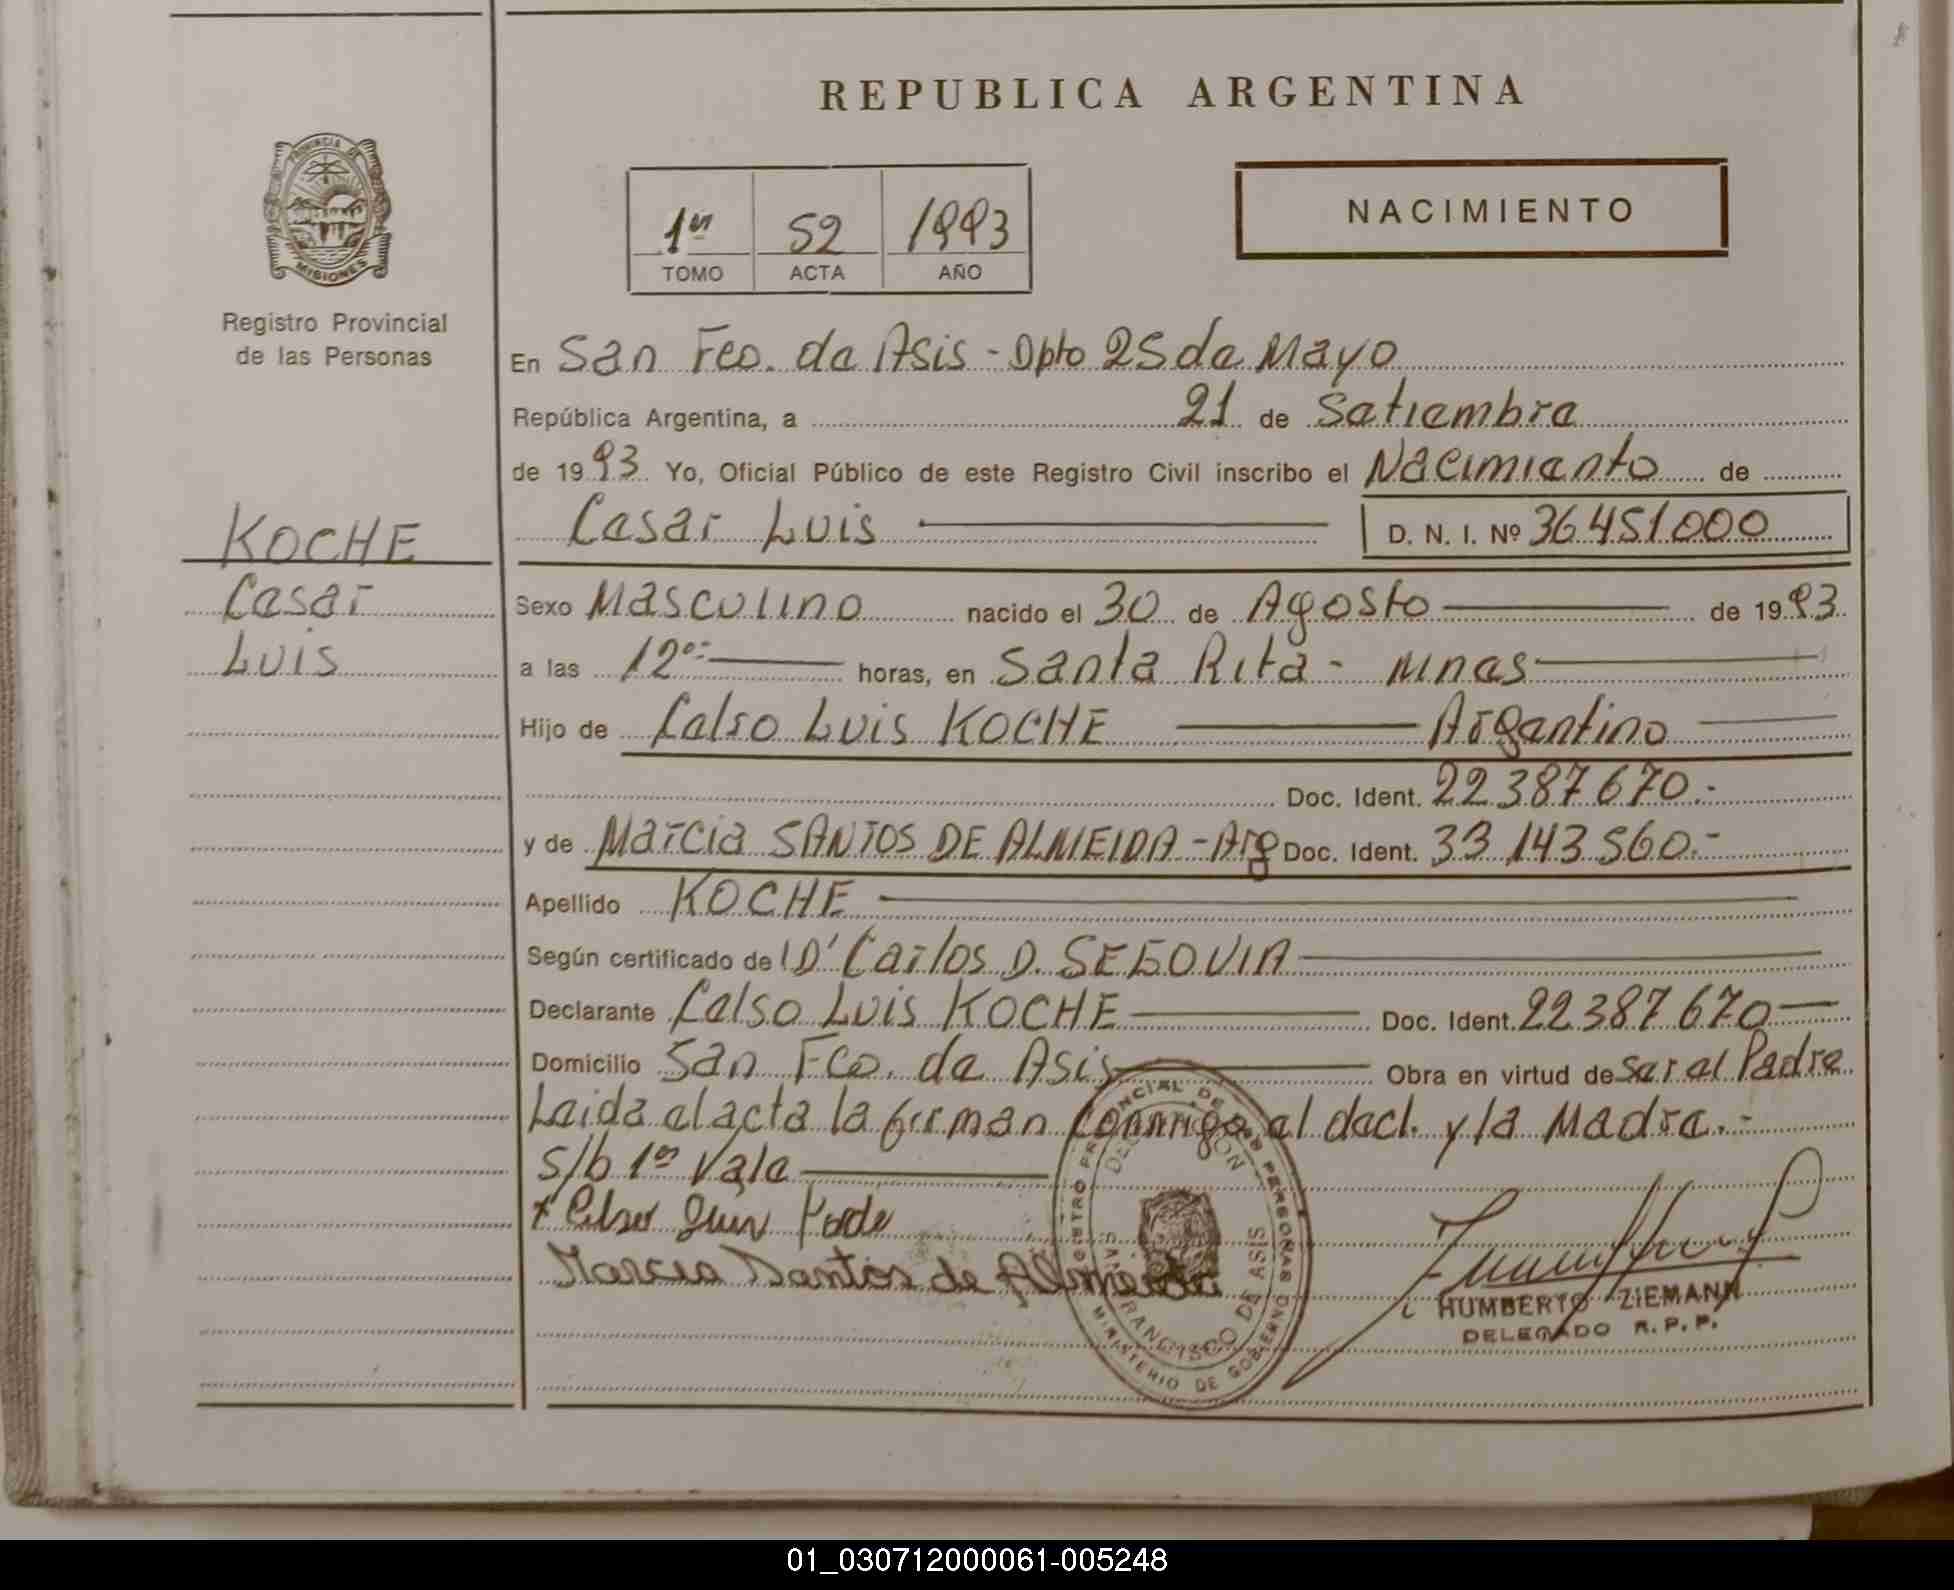 REPUBLICA ARGENTINA
PROVINCIA DE
MISIONES
Registro Provincial
de las Personas
1er 52 1993
TOMO ACTA AÑO
NACIMIENTO
En San Fco. de Asis - Dpto 25 de Mayo
República Argentina, a 21 de Setiembre
de 1993 Yo, Oficial Público de este Registro Civil inscribo el Nacimiento de
Cesar Luis D. N. I. Nº 36451000
KOCHE
Cesar
Luis
Sexo Masculino nacido el 30 de Agosto de 1993
a las 12 horas, en Santa Rita - Mnes
Hijo de Celso Luis KOCHE Argentino
Doc. Ident. 22387670.-
y de Marcia SANTOS DE ALMEIDA - Arg Doc. Ident. 33143560.-
Apellido KOCHE
Según certificado de Dr Carlos D. SEGOVIA
Declarante Celso Luis KOCHE Doc. Ident. 22387670
Domicilio San Fco. de Asis Obra en virtud de ser el Padre
Leida el acta la firman conmigo el decl. y la Madre.-
s/b 1er Vale
Celso Luis Koche
Marcia Santos de Almeida
REGISTRO PROVINCIAL DE LAS PERSONAS
DELEGACION
SAN FRANCISCO DE ASIS
MINISTERIO DE GOBIERNO
HUMBERTO ZIEMANN
DELEGADO R.P.P.
01_030712000061-005248